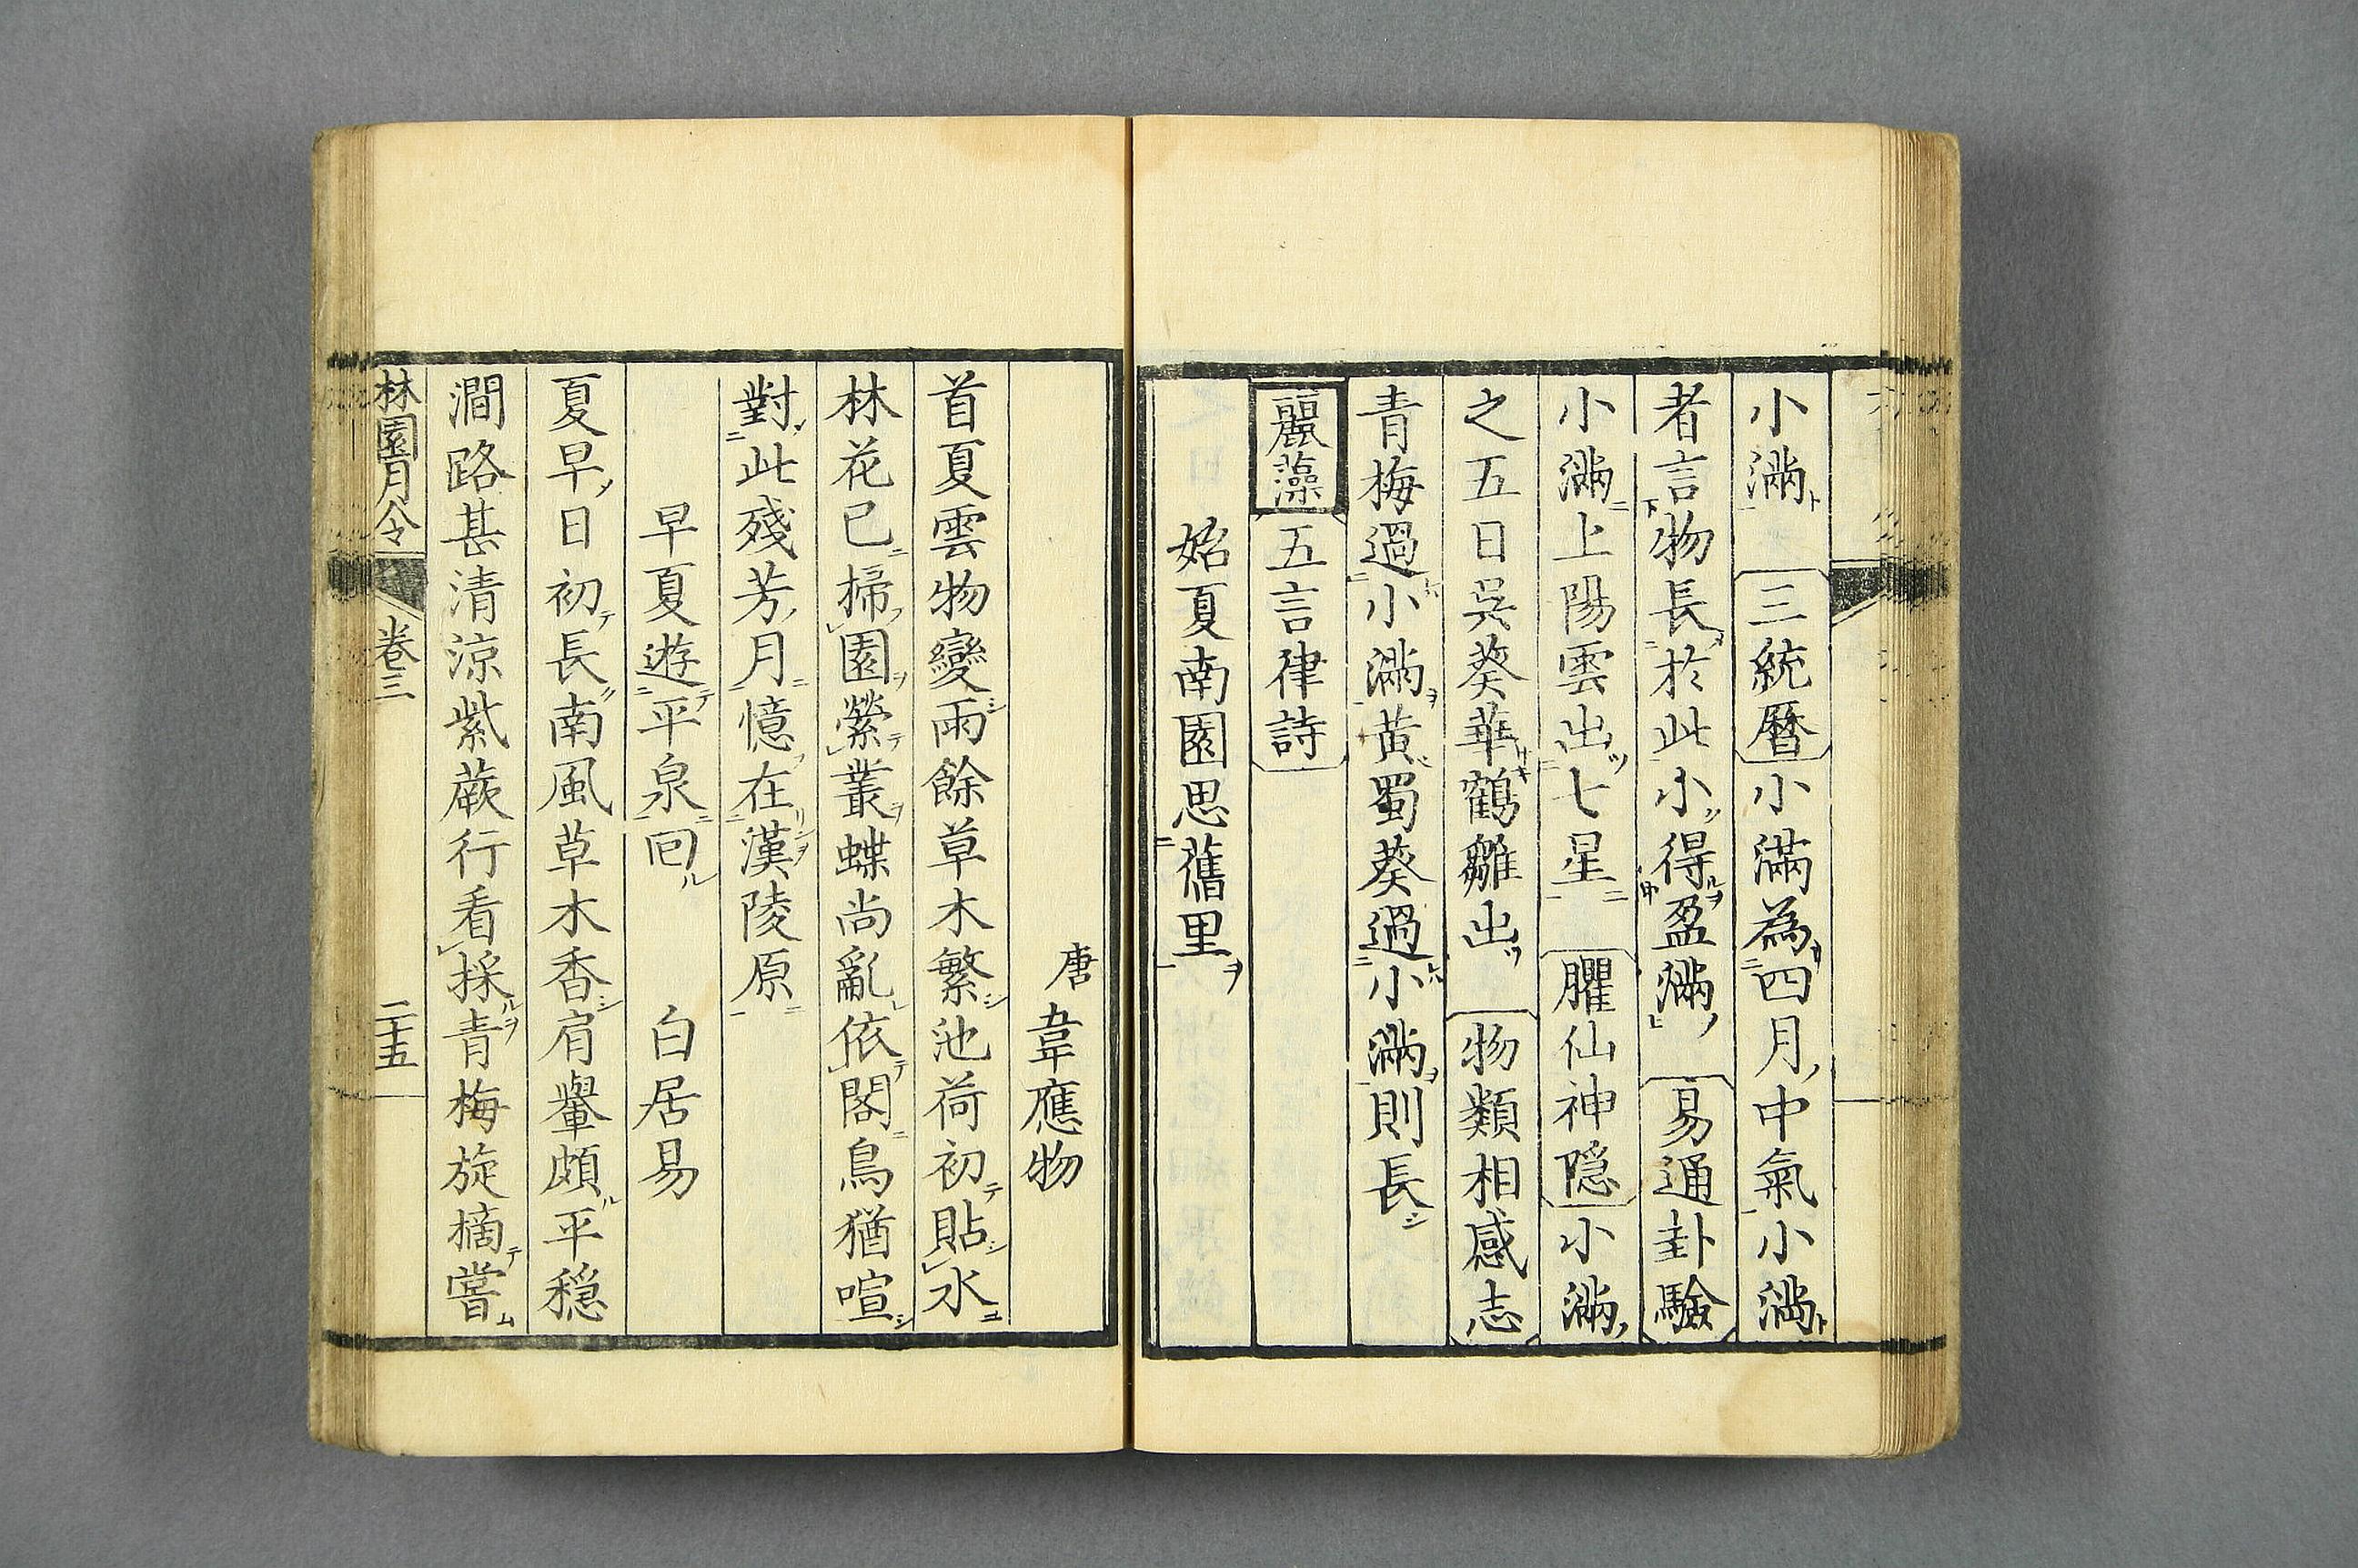 小滿 三統曆小滿為四月中氣小滿
者言物長於此小得盈滿 易通卦驗
小滿上陽雲出七星 臞仙神隠小滿
之五日吳葵華鶴雛出 物類相感志
青梅過小滿黃蜀葵過小滿則長
麗藻五言律詩
始夏南園思舊里
唐 韋應物
首夏雲物變雨餘草木繁池荷初貼水
林花已掃園縈叢蝶尚亂依閣鳥猶喧
對此殘芳月憶在漢陵原
早夏遊平泉回 白居易
夏早日初長南風草木香肩轝頗平穏
澗路甚清涼紫蕨行看採青梅旋摘嘗
林園月令 卷三 二十五